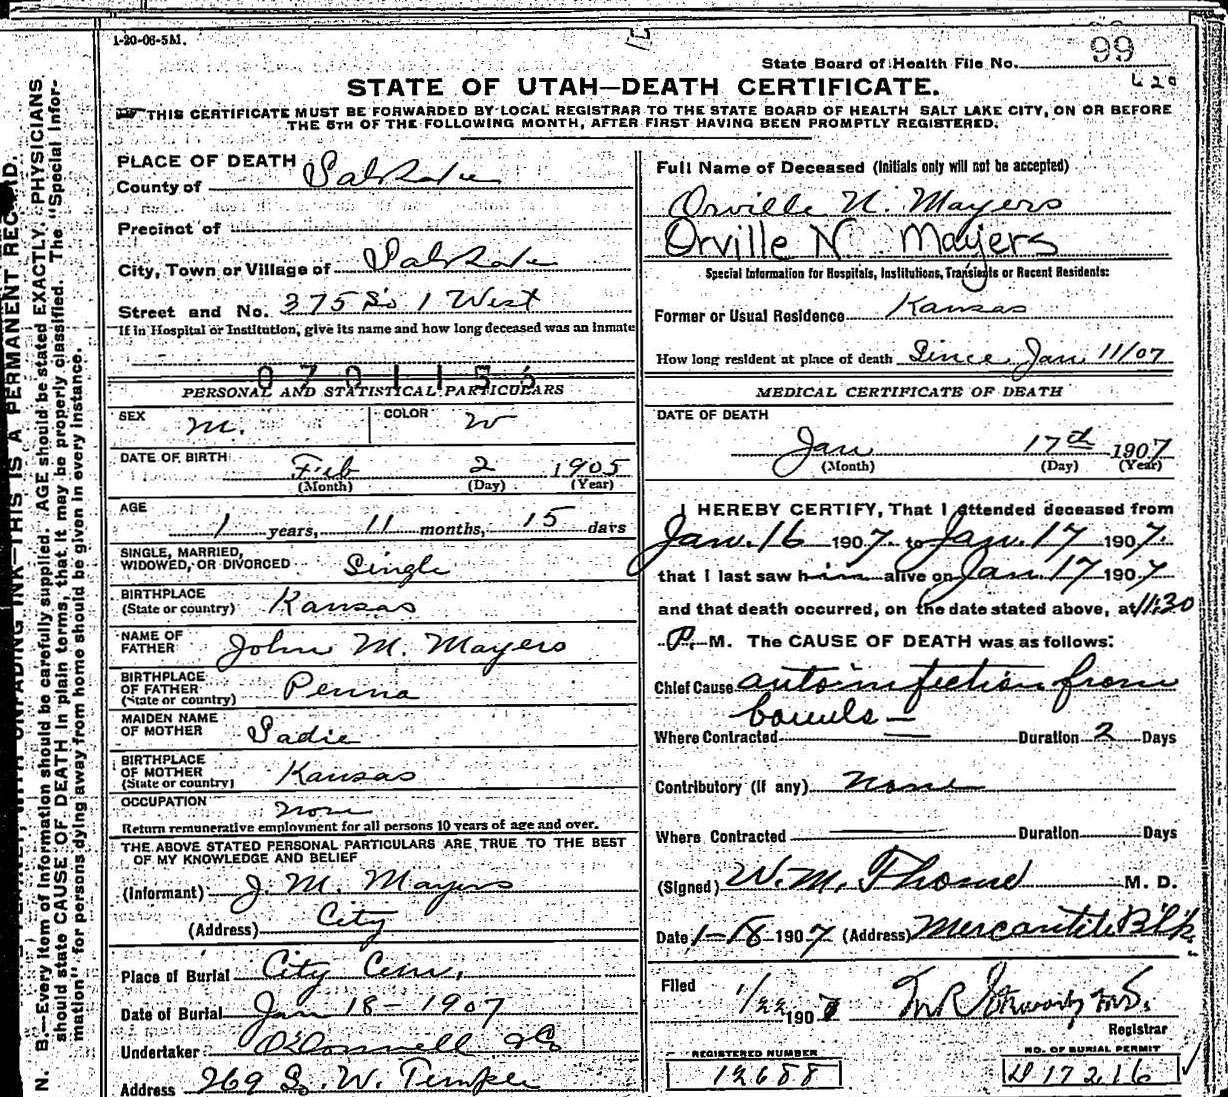 1-20-06-5M.
State Board of Health File No. 99
620
STATE OF UTAH—DEATH CERTIFICATE.
THIS CERTIFICATE MUST BE FORWARDED BY LOCAL REGISTRAR TO THE STATE BOARD OF HEALTH SALT LAKE CITY, ON OR BEFORE
THE 5TH OF THE FOLLOWING MONTH, AFTER FIRST HAVING BEEN PROMPTLY REGISTERED.
PLACE OF DEATH
County of Salt Lake
Precinct of
City, Town or Village of Salt Lake
Street and No. 375 So 1 West
If in Hospital or Institution, give its name and how long deceased was an inmate
PERSONAL AND STATISTICAL PARTICULARS
SEX M. COLOR W
DATE OF BIRTH Feb 2 1905
(Month) (Day) (Year)
AGE 1 years, 11 months, 15 days
SINGLE, MARRIED,
WIDOWED, OR DIVORCED Single
BIRTHPLACE
(State or country) Kansas
NAME OF
FATHER John M. Mayers
BIRTHPLACE
OF FATHER Penna
(State or country)
MAIDEN NAME
OF MOTHER Sadie
BIRTHPLACE
OF MOTHER Kansas
(State or country)
OCCUPATION non
Return remunerative employment for all persons 10 years of age and over.
THE ABOVE STATED PERSONAL PARTICULARS ARE TRUE TO THE BEST
OF MY KNOWLEDGE AND BELIEF
(Informant) J. M. Mayers
(Address) City
Place of Burial City Cem.
Date of Burial Jan 18-1907
Undertaker O'Donnell & Co
Address 269 S. W. Temple
Full Name of Deceased (Initials only will not be accepted)
Orville N. Mayers
Orville N Mayers
Special Information for Hospitals, Institutions, Transients or Recent Residents:
Former or Usual Residence Kansas
How long resident at place of death Since Jan 11/07
MEDICAL CERTIFICATE OF DEATH
DATE OF DEATH
Jan 17th 1907
(Month) (Day) (Year)
I HEREBY CERTIFY, That I attended deceased from
Jan. 16 1907. to Jan. 17 1907.
that I last saw him alive on Jan 17 1907
and that death occurred, on the date stated above, at 11:30
P. M. The CAUSE OF DEATH was as follows:
Chief Cause autoinfection from
bowels —
Where Contracted — Duration 2 Days
Contributory (If any) none
Where Contracted — Duration Days
(Signed) W. M. Thome M. D.
Date 1-18-1907 (Address) Mercantile Blk.
Filed 1/22 1907
Registrar
REGISTERED NUMBER
12688
NO. OF BURIAL PERMIT
D 17216
N. B.—Every item of information should be carefully supplied. AGE should be stated EXACTLY. PHYSICIANS
should state CAUSE OF DEATH in plain terms, that it may be properly classified. The "Special Infor-
mation" for persons dying away from home should be given in every instance.
UNFADING INK—THIS IS A PERMANENT RECORD.